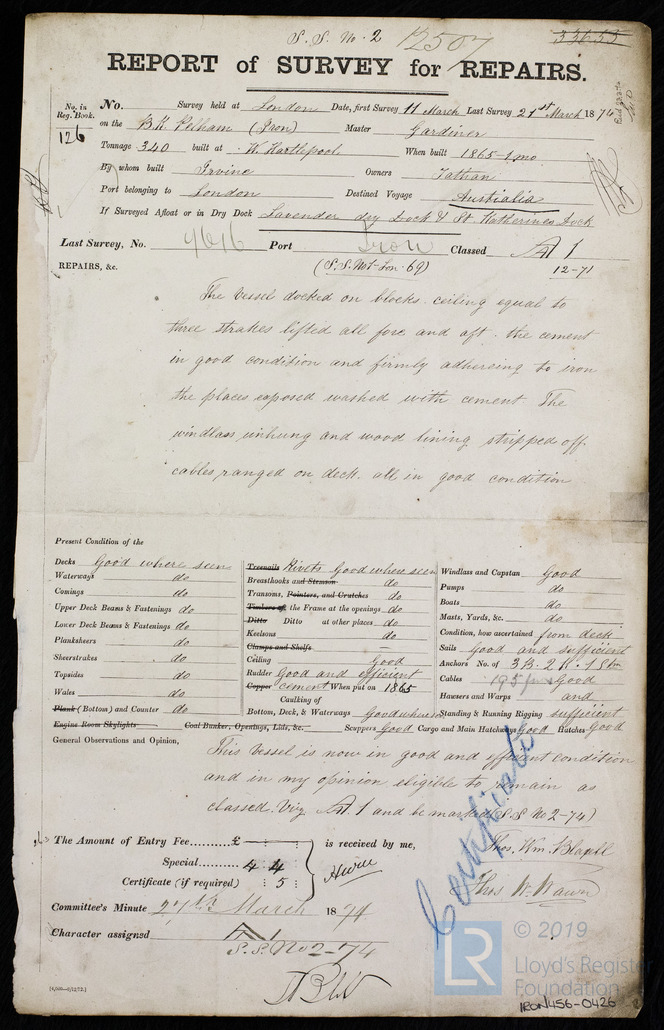 S. S. No. 2 12507 33653
REPORT of SURVEY for REPAIRS.
No. in Reg. Book. No. Survey held at London Date, first Survey 11 March Last Survey 21st March 1874
126 on the Bk Pelham (Iron) Master Gardiner
Tonnage 340 built at W. Hartlepool When built 1865-1 mo
By whom built Irvine Owners Tathan
Port belonging to London Destined Voyage Australia
If Surveyed Afloat or in Dry Dock Lavender dry Dock & St. Katherines Dock
Last Survey, No. 4616 Port Iron Classed A 1
REPAIRS, &c. (S.S. No1-Lon-69) 12-71
The Vessel docked on blocks. ceiling equal to
three strakes lifted all fore and aft. the cement
in good condition and firmly adhering to iron
the places exposed washed with cement The
windlass unhung and wood lining stripped off.
cables ranged on deck. all in good condition
Present Condition of the
Decks Good where seen
Waterways do
Comings do
Upper Deck Beams & Fastenings do
Lower Deck Beams & Fastenings do
Planksheers do
Sheerstrakes do
Topsides do
Wales do
Plank (Bottom) and Counter do
Engine Room Skylights
Treenails Rivets Good where seen
Breasthooks and Stemson do
Transoms, Pointers, and Crutches do
Timbers of the Frame at the openings do
Ditto Ditto at other places do
Keelsons do
Clamps and Shelfs
Ceiling Good
Rudder Good and efficient
Copper cement When put on 1865
Caulking of
Bottom, Deck, & Waterways Good where
Coal Bunker, Openings, Lids, &c. Scuppers Good Cargo and Main Hatchways Good Hatches Good
Windlass and Capstan Good
Pumps do
Boats do
Masts, Yards, &c. do
Condition, how ascertained from deck
Sails Good and sufficient
Anchors No. of 3 B. 2 K. 1 S
Cables 195 Good
Hawsers and Warps and
Standing & Running Rigging sufficient
General Observations and Opinion,
This Vessel is now in good and efficient condition
and in my opinion eligible to remain as
classed. Viz A 1 and be marked (S.S No 2-74)
Certificate
The Amount of Entry Fee £ is received by me,
Special 4 4
Certificate (if required) : 5 :
Thos. Wm. Blagell
Thos W. Wawn
Committee's Minute 27th March 1874
Character assigned A 1
S.S. No 2-74
© 2019
LR Lloyd's Register Foundation
IRON456-0426